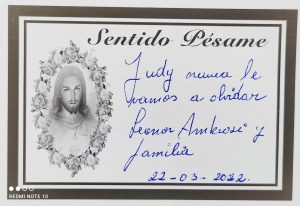 Sentido Pésame
Judy nunca le
vamos a olvidar
Leonor Ambrosi y
familia
22-03-2022.
REDMI NOTE 10